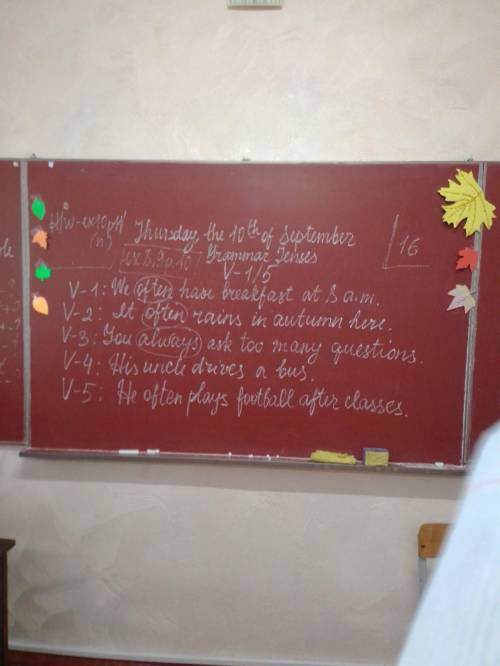 H/w-ex10p11
(n)
Thursday, the 10th of September
16
ex 8,9 p.10
Grammar Tenses
V-1/5
V-1: We often have breakfast at 8 a.m.
V-2: It often rains in autumn here.
V-3: You always ask too many questions.
V-4: His uncle drives a bus.
V-5: He often plays football after classes.